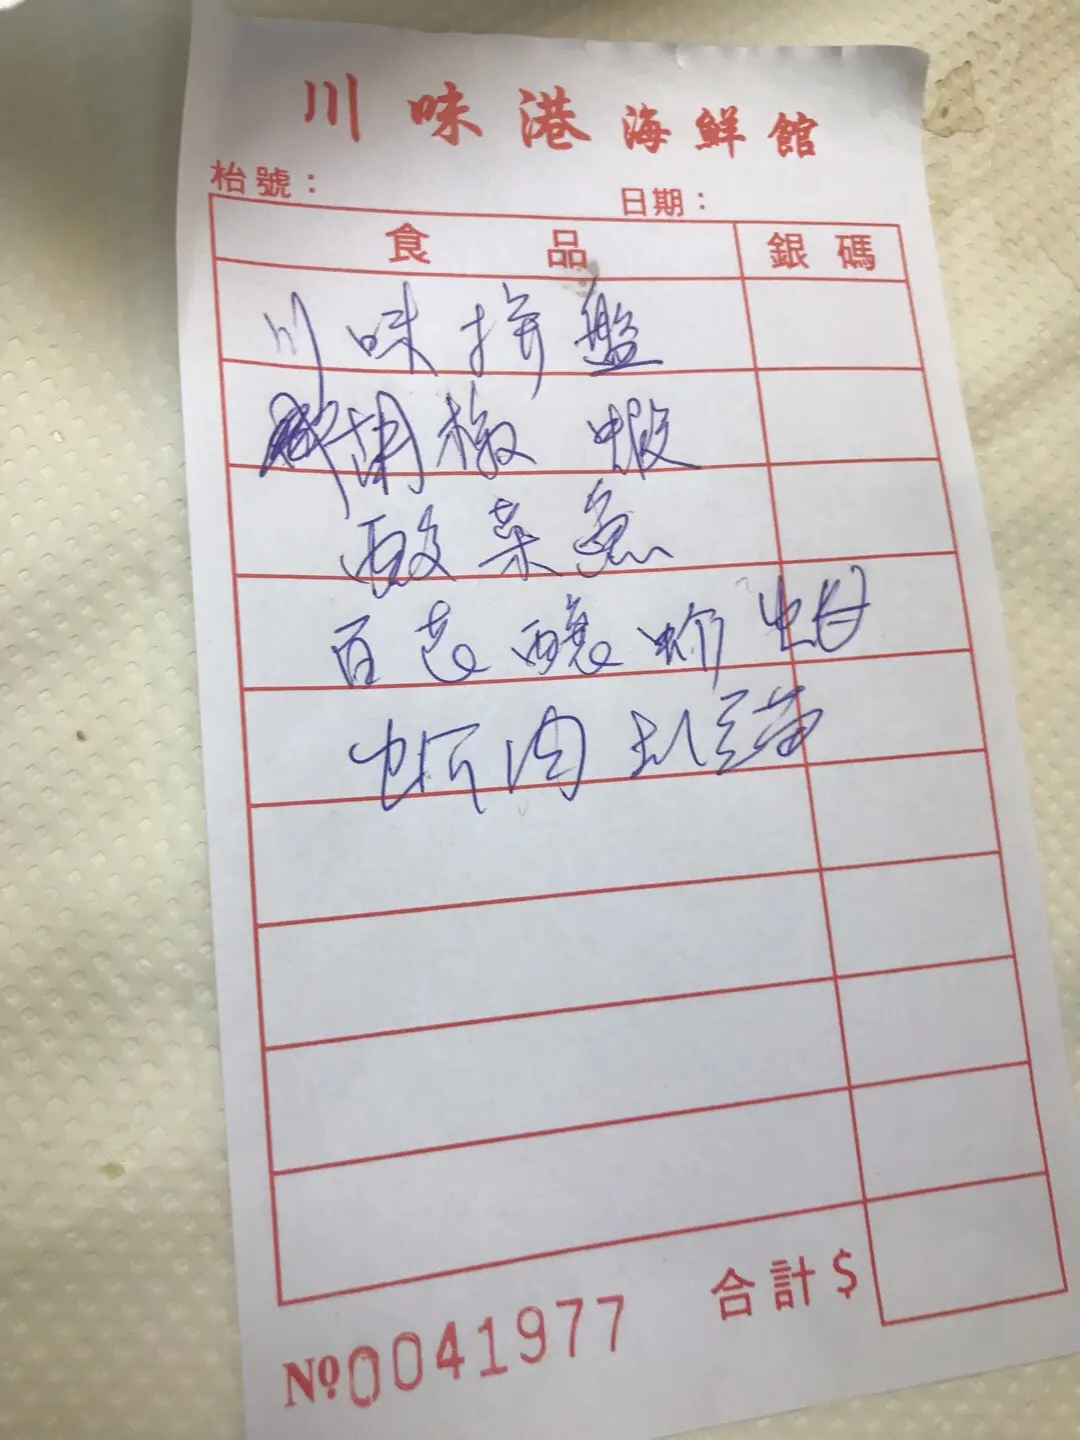 川味港海鮮館
枱號：
日期：
食品 銀碼
川味拼盤
胡椒蝦
酸菜魚
百花釀
虾肉 豆苗
合計$
Nº0041977